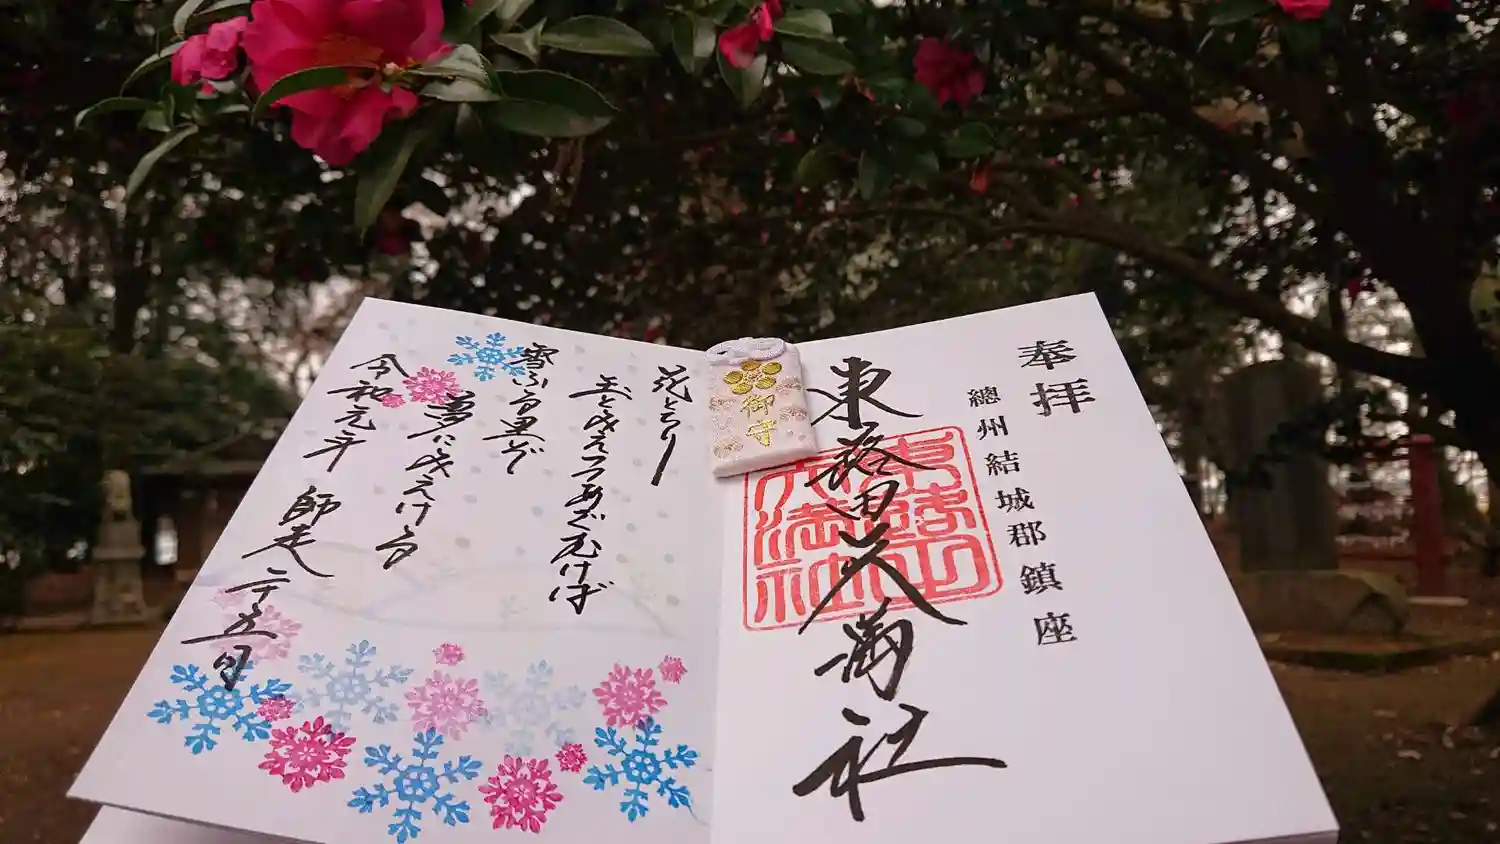 奉拝
總州結城郡鎮座
東蕗田天満社
東蕗田
天満社
御守
花とちり
玉と見えつつあざむけば
雪ふる里ぞ
夢に見えける
令和元年 師走 二十五日